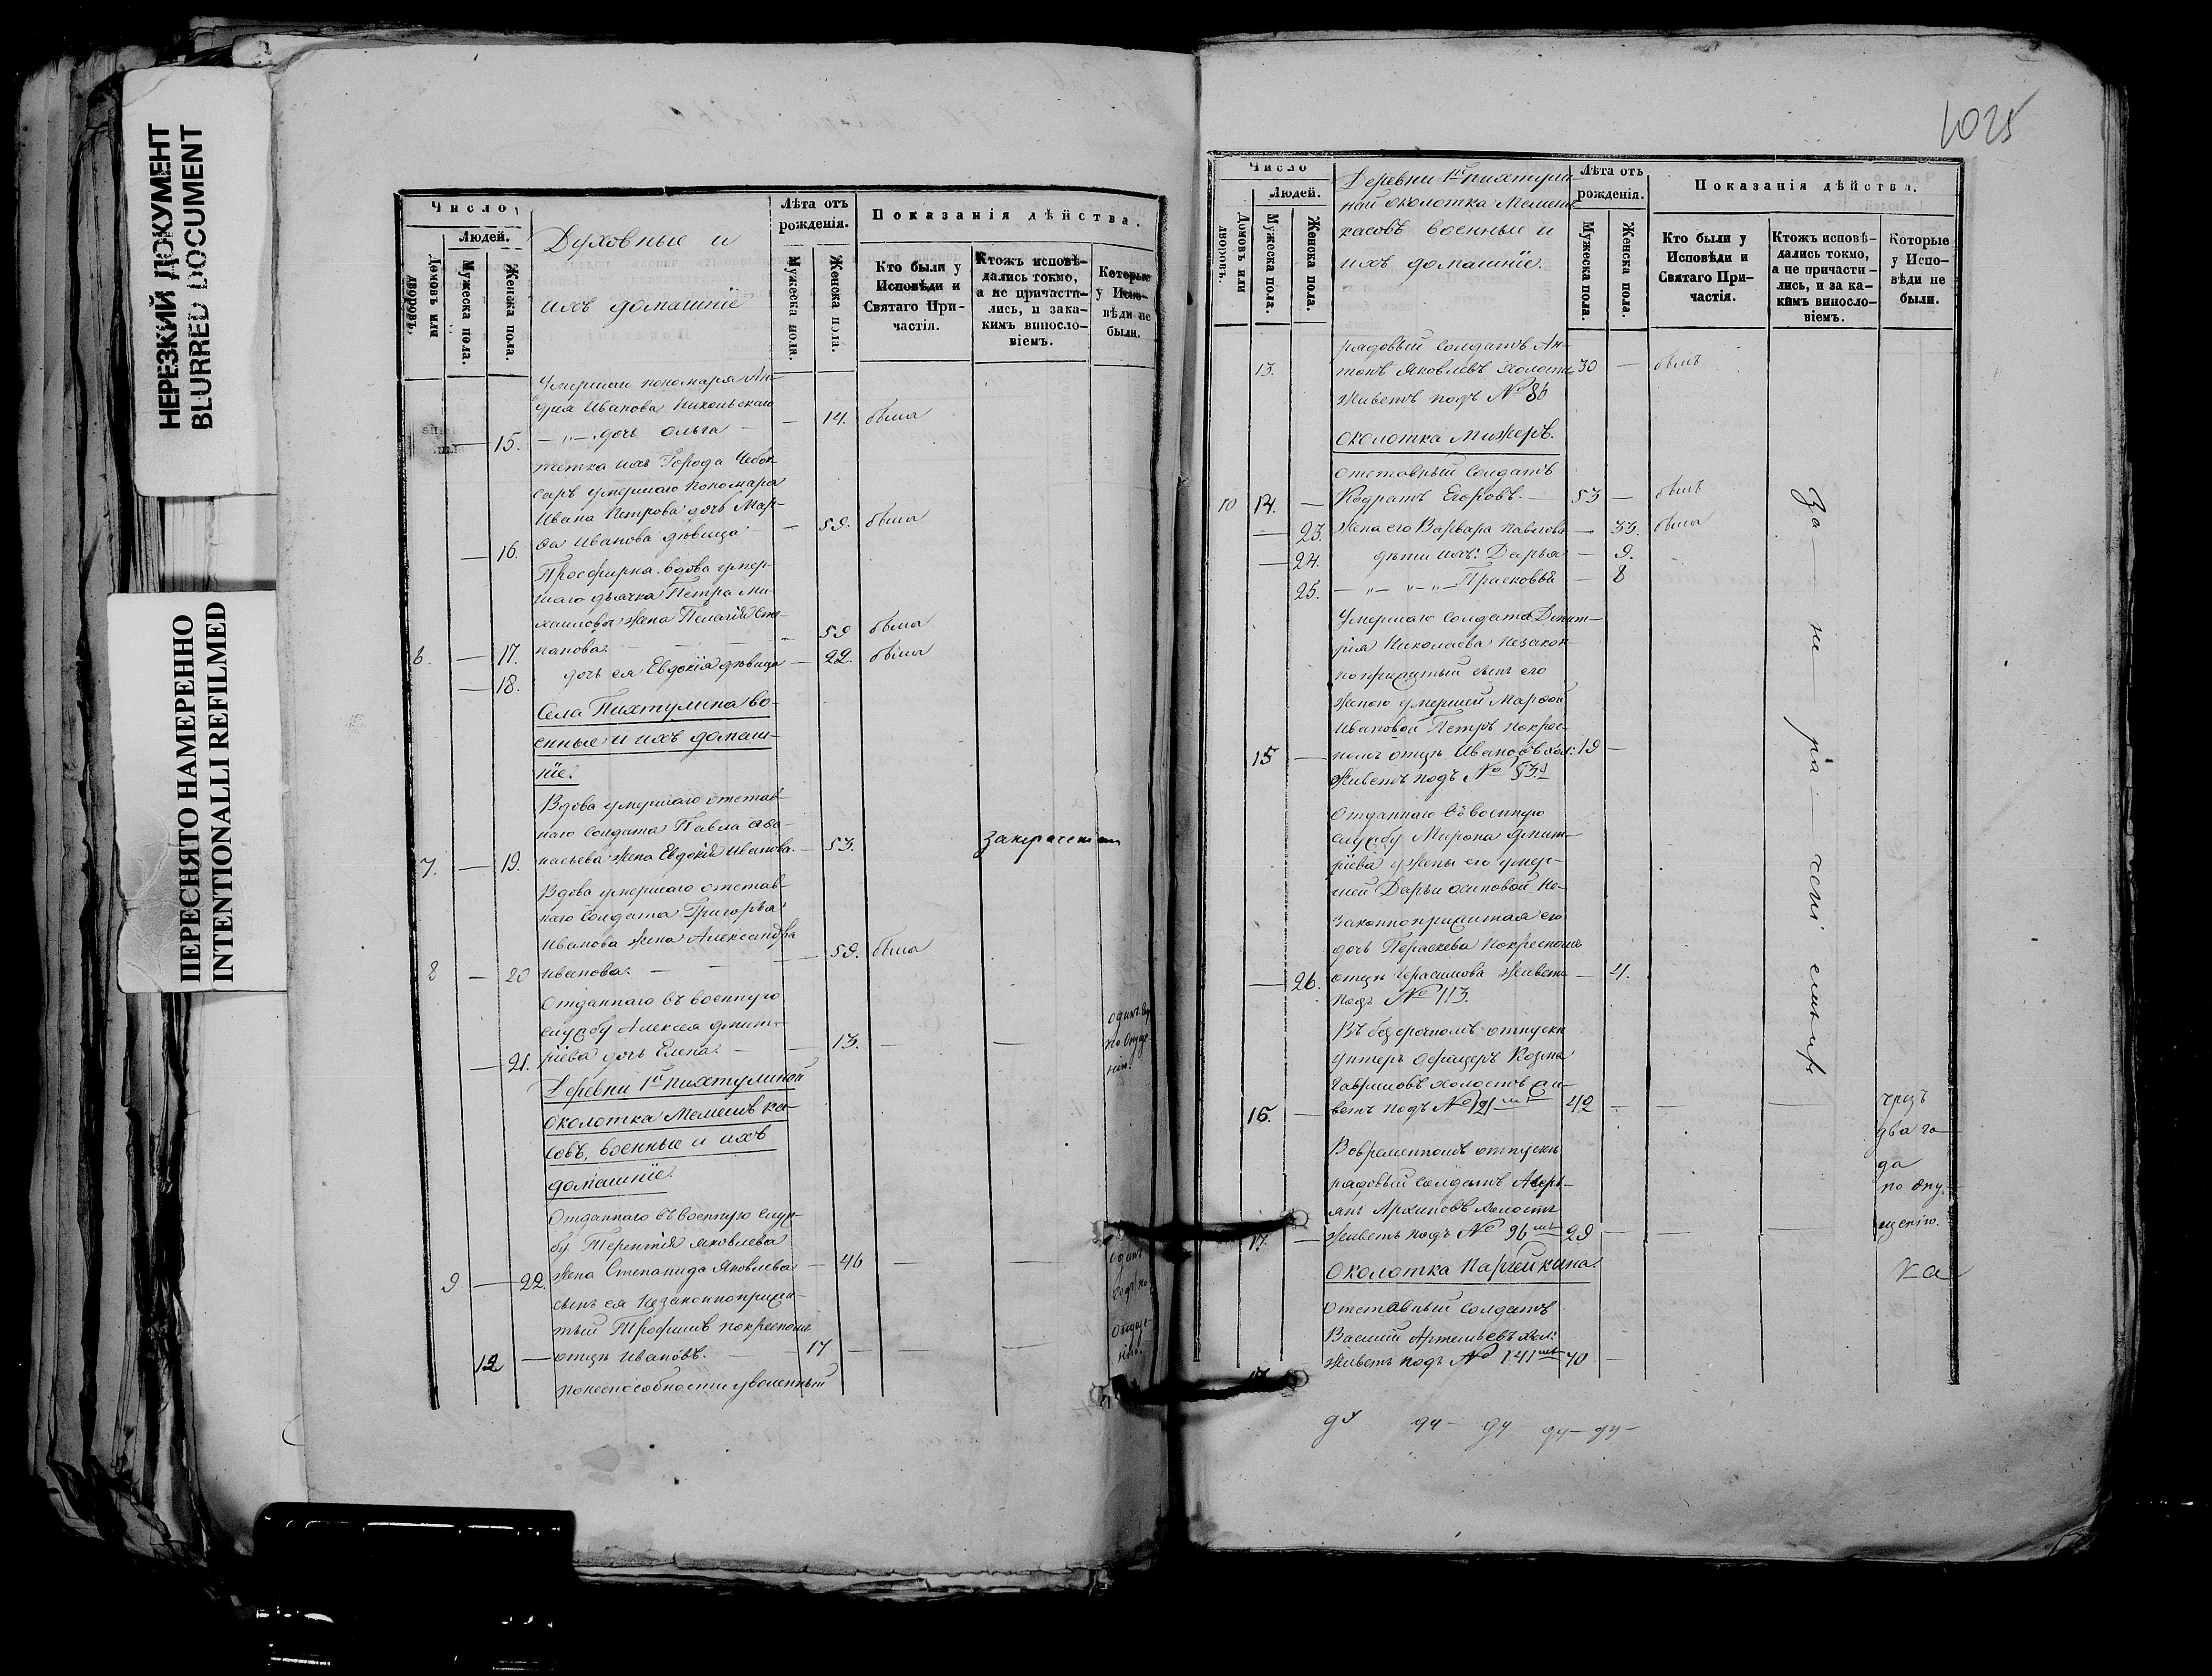 НЕРЕЗКИЙ ДОКУМЕНТ
BLURRED DOCUMENT
ПЕРЕСНЯТО НАМЕРЕННО
INTENTIONALLI REFILMED
Число
Людей.
Домовъ или дворовъ.
Мужеска пола.
Женска пола.
Духовные и
ихъ домашніе
Лѣта отъ рожденія.
Мужеска пола.
Женска пола.
Показанія дѣйства.
Кто были у Исповѣди и Святаго При-частія.
Ктожъ исповѣ-дались токмо, а не причасти-лись, и зака-кимъ винословіемъ.
Которые у Испо-вѣди не были.
Умершаго пономаря Ан-
дрея Иванова Никольскаго
15. — „ — дочь Ольга — — 14. была
тетка ихъ Города Чебок-
саръ умершаго Пономаря
Ивана Петрова дочь Мар-
16. ѳа Иванова дѣвица — 59. была
Просфирня вдова умер-
шаго дьячка Петра Ми-
хаилова жена Пелагія Сте-
6. — 17. панова. — — 59 была
— 18. дочь ея Евдокія дѣвица — 22. была
Села Пихтулина во-
енные и ихъ домаш-
ніе.
Вдова умершаго отстав-
наго солдата Павла Аѳа-
7. — 19. насьева жена Евдокія Иванова. — 53.
Вдова умершаго отстав-
наго солдата Григорья
Иванова жена Александра
8 — 20 Иванова. — — 59. была
Отданнаго въ военную
службу Алексея Дмит-
— 21. ріева дочь Елена. — — 13. — —
Деревни 1й Пихтулиной
околотка Мемешъ ка-
совъ, военные и ихъ
домашніе.
Отданнаго въ военную служ-
бу Терентія Яковлева
9 — 22. жена Степанида Яковлева — 46 — —
сынъ ея незаконноприжи-
тый Трофимъ покрестном
12 — отцѣ Ивановъ. — 17 — — —
по неспособности уволенный
1025
Число
Людей.
Домовъ или дворовъ.
Мужеска пола.
Женска пола.
Деревни 1й Пихтули-
ной околотка Мемешъ
касовъ военные и
ихъ домашніе.
Лѣта отъ рожденія.
Мужеска пола.
Женска пола.
Показанія дѣйства.
Кто были у Исповѣди и Святаго При-частія.
Ктожъ исповѣ-дались токмо, а не причасти-лись, и за ка-кимъ винословіемъ.
Которые у Испо-вѣди не были.
рядовый солдатъ Ан-
13. тонъ Яковлевъ холостъ 30 — былъ
живетъ подъ № 86
околотка Мижеръ.
отставный солдатъ
10 14. — Кодратъ Егоровъ. — 53 — былъ
— 23. жена его Варвара Павлова — 33. была
— 24. дѣти ихъ: Дарья — 9.
25. — „ — „ — Прасковья — 8
Умершаго солдата Дмит-
рія Николаева незакон-
ноприжитый сынъ его
женою умершей Марѳой
Ивановой Петръ покрест-
15 — номъ отцѣ Ивановъ хол: 19 —
Живетъ подъ №
Отданнаго въ военную
службу Мирона Дмит-
ріева у жены его умер-
шей Дарьи Осиповой не-
законноприжитая его
дочь Пераскева покрестном
— 26. отцѣ Герасимова живетъ — 4.
подъ № 113.
Въ безсрочномъ отпуску
унтеръ офицеръ Козма
Гавриловъ холостъ жи-
16. — ветъ подъ № 121 мъ 42 — — —
Вовременномъ отпуску
рядовый солдатъ Аверь-
янъ Архиповъ холостъ
17. — живетъ подъ № 96 мъ 29 — — —
Околотка Паршикина
отставный солдатъ
Василій Артемьевъ хол:
живетъ подъ № 141 мъ 70 —
За — не — рa — чені емъ
чрезъ
два го
да
по опу-
щенію.